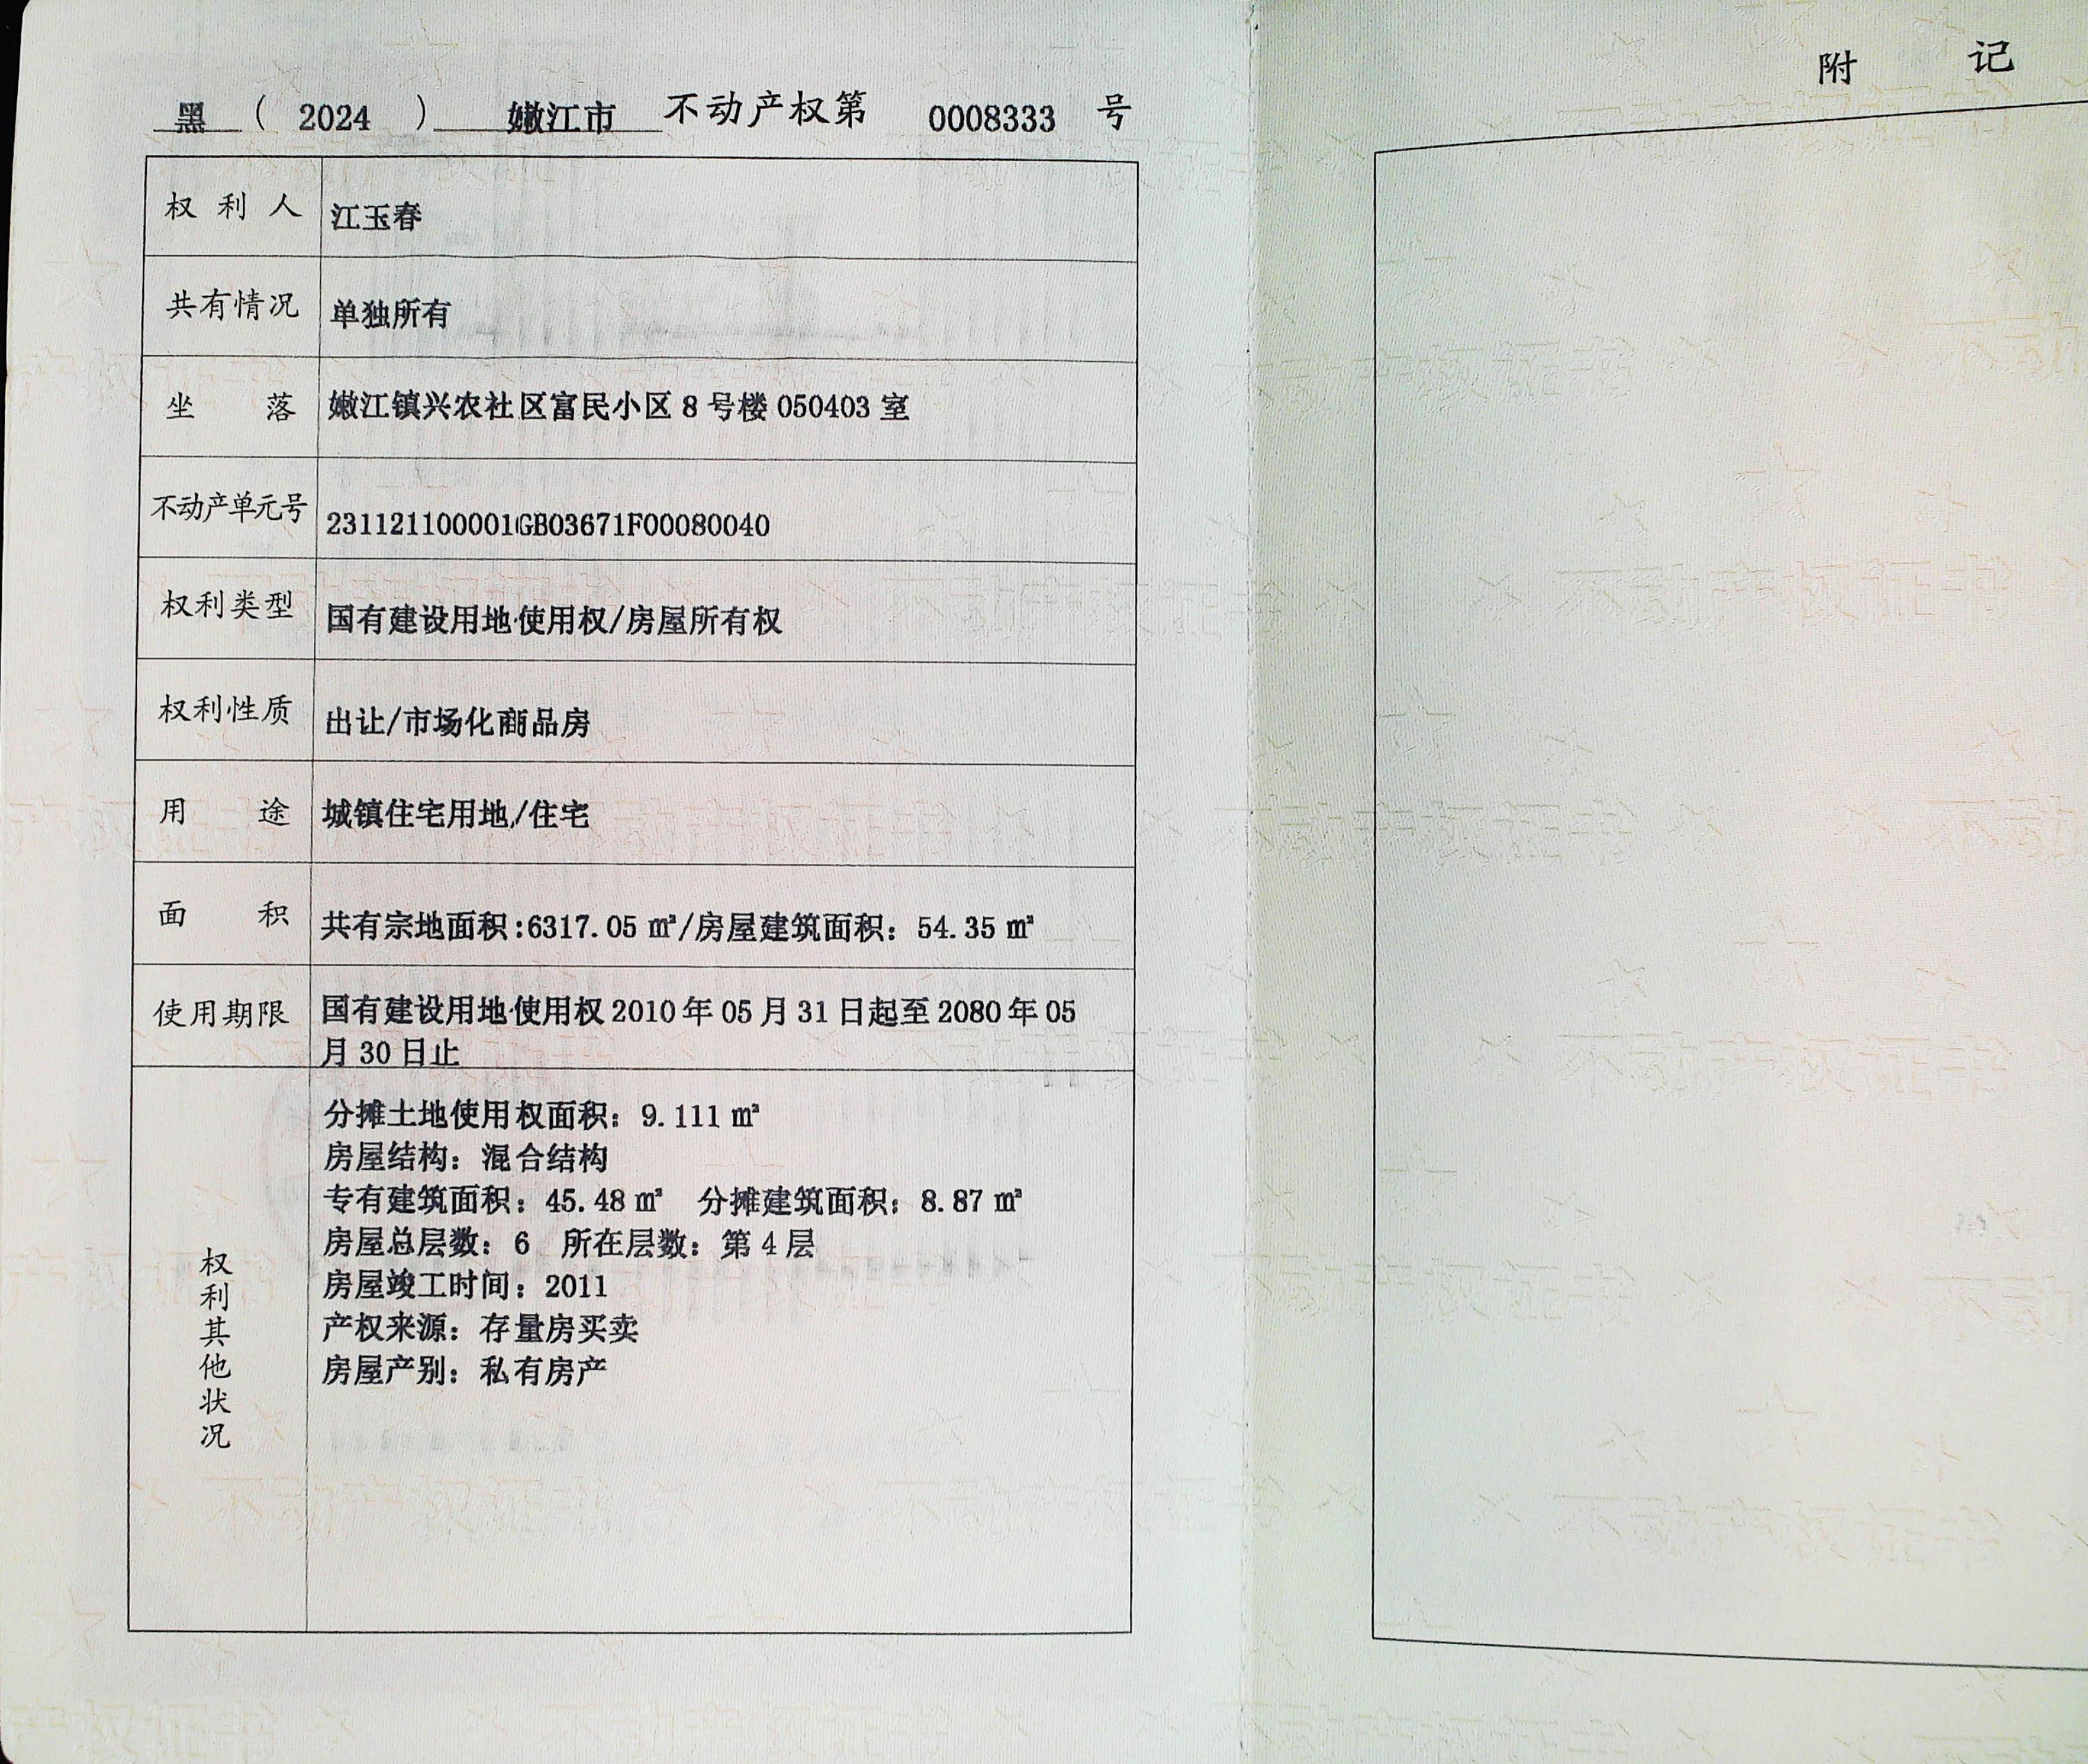 黑 ( 2024 ) 嫩江市 不动产权第 0008333 号
权利人 江玉春
共有情况 单独所有
坐落 嫩江镇兴农社区富民小区 8 号楼 050403 室
不动产单元号 231121100001GB03671F00080040
权利类型 国有建设用地使用权/房屋所有权
权利性质 出让/市场化商品房
用途 城镇住宅用地/住宅
面积 共有宗地面积:6317.05 ㎡/房屋建筑面积: 54.35 ㎡
使用期限 国有建设用地使用权 2010 年 05 月 31 日起至 2080 年 05
月 30 日止
权利其他状况
分摊土地使用权面积: 9.111 ㎡
房屋结构: 混合结构
专有建筑面积: 45.48 ㎡ 分摊建筑面积: 8.87 ㎡
房屋总层数: 6 所在层数: 第 4 层
房屋竣工时间: 2011
产权来源: 存量房买卖
房屋产别: 私有房产
附 记